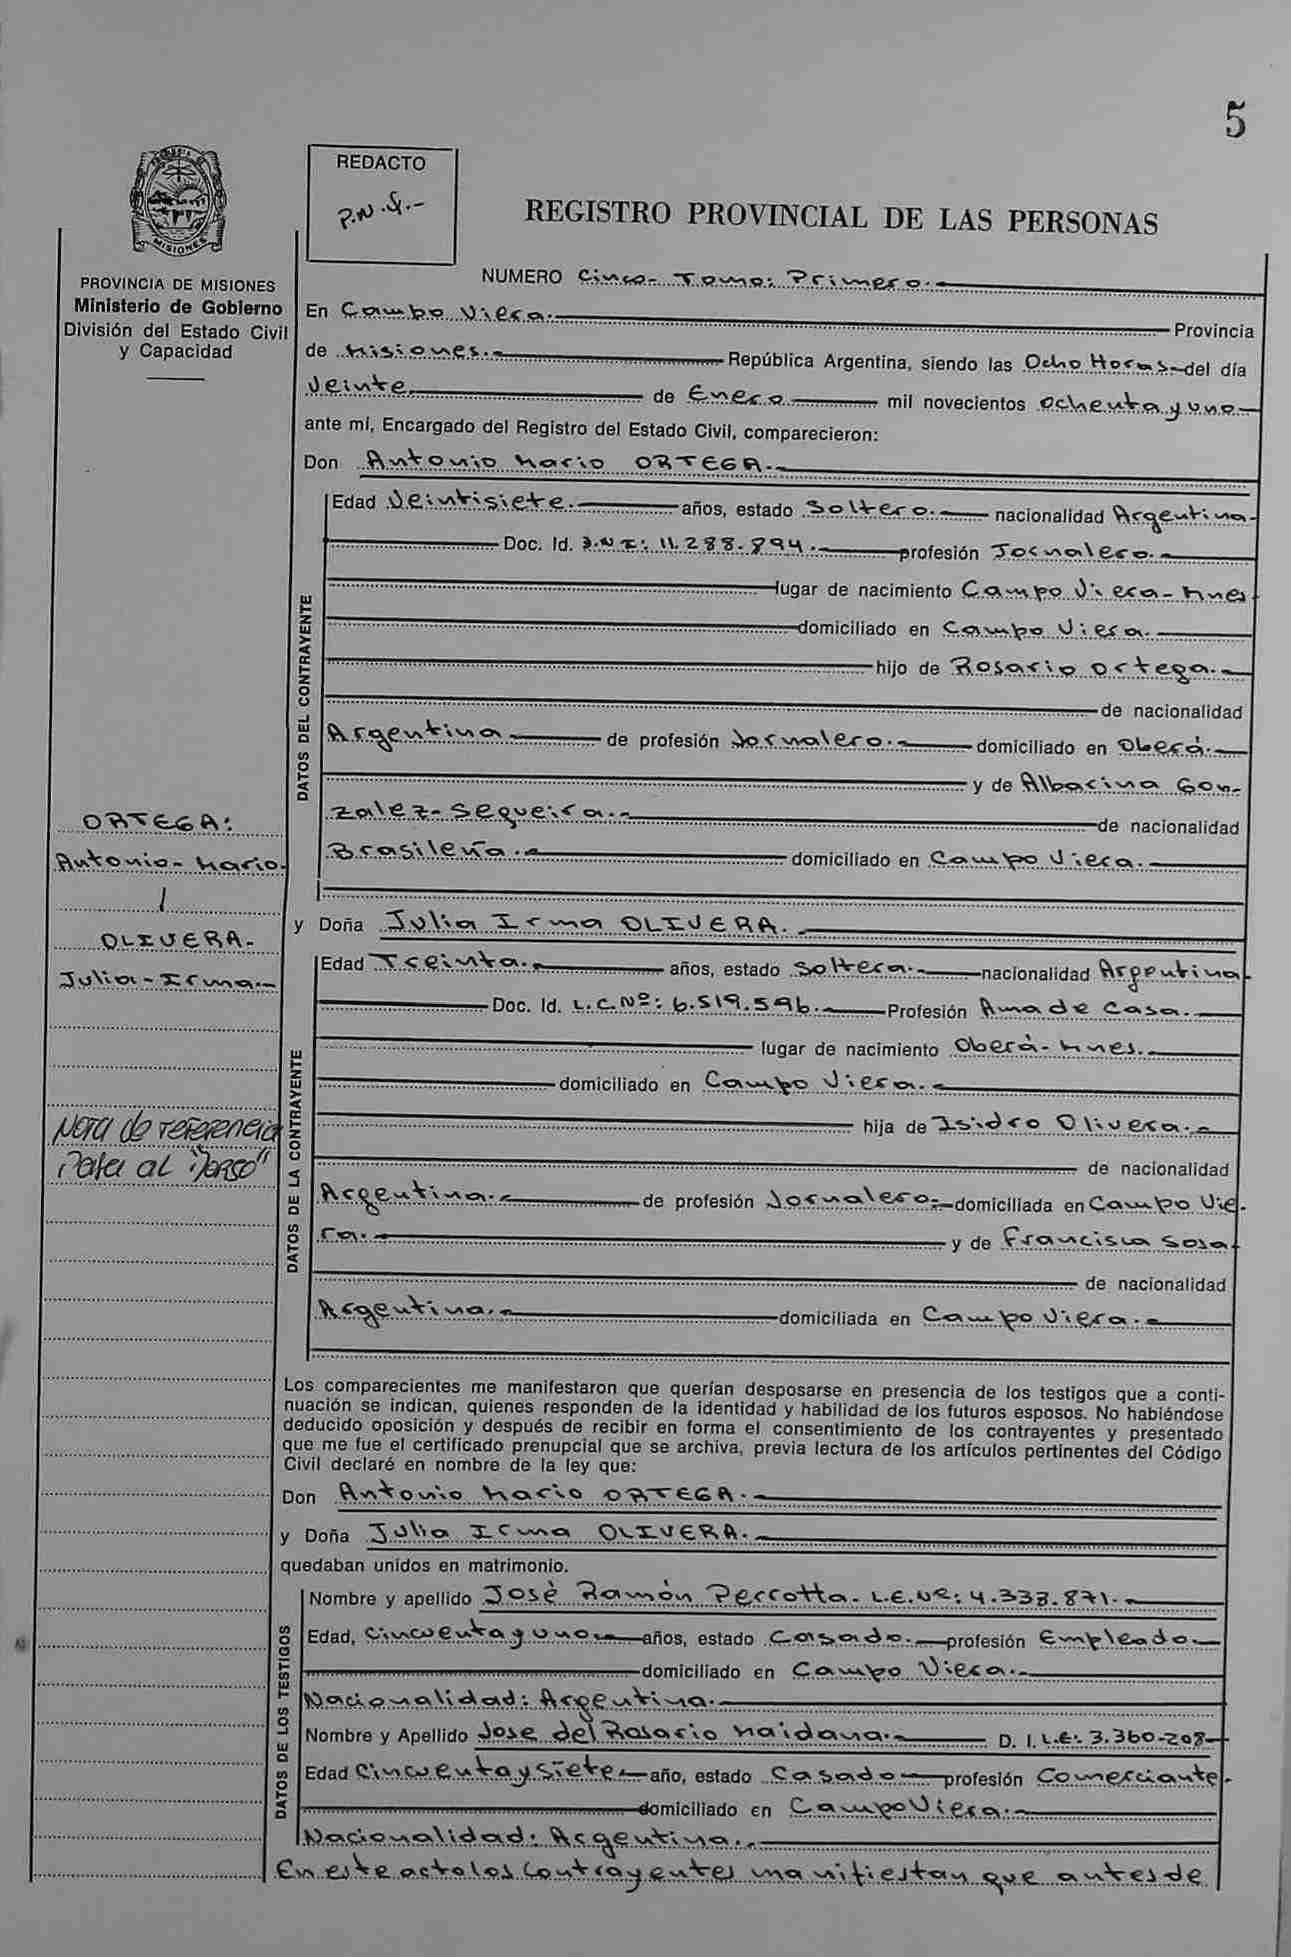 5
REDACTO
P.N.S.-
REGISTRO PROVINCIAL DE LAS PERSONAS
MISIONES
PROVINCIA DE MISIONES
Ministerio de Gobierno
División del Estado Civil
y Capacidad
NUMERO Cinco- Tomo: Primero.-
En Campo Viera.- Provincia
de Misiones.- República Argentina, siendo las Ocho Horas- del día
Veinte de Enero mil novecientos ochenta y uno-
ante mí, Encargado del Registro del Estado Civil, comparecieron:
Don Antonio Mario ORTEGA.-
DATOS DEL CONTRAYENTE
Edad Veintisiete.- años, estado Soltero.- nacionalidad Argentina-
Doc. Id. D.N.I: 11.288.894.- profesión Jornalero.-
lugar de nacimiento Campo Viera- Mnes
domiciliado en Campo Viera.-
hijo de Rosario Ortega.-
de nacionalidad
Argentina de profesión Jornalero.- domiciliado en Oberá.-
y de Albarina Gon-
zalez- Sequeira.- de nacionalidad
Brasileña.- domiciliado en Campo Viera.-
ORTEGA:
Antonio- Mario-
/
OLIVERA.-
Julia-Irma.-
Nota de referencia
Pasa al "Dorso"
y Doña Julia Irma OLIVERA.-
DATOS DE LA CONTRAYENTE
Edad Treinta.- años, estado Soltera.- nacionalidad Argentina-
Doc. Id. L.C.Nº: 6.519.596.- Profesión Ama de Casa.-
lugar de nacimiento Oberá- Mnes.-
domiciliado en Campo Viera.-
hija de Isidro Olivera.-
de nacionalidad
Argentina.- de profesión Jornalero.- domiciliada en Campo Vie-
ra.- y de Francisca Sosa-
de nacionalidad
Argentina.- domiciliada en Campo Viera.-
Los comparecientes me manifestaron que querían desposarse en presencia de los testigos que a conti-
nuación se indican, quienes responden de la identidad y habilidad de los futuros esposos. No habiéndose
deducido oposición y después de recibir en forma el consentimiento de los contrayentes y presentado
que me fue el certificado prenupcial que se archiva, previa lectura de los artículos pertinentes del Código
Civil declaré en nombre de la ley que:
Don Antonio Mario ORTEGA.-
y Doña Julia Irma OLIVERA.-
quedaban unidos en matrimonio.
DATOS DE LOS TESTIGOS
Nombre y apellido José Ramón Perrotta. L.E.Nº: 4.333.871.-
Edad, Cincuenta y uno- años, estado Casado.- profesión Empleado-
domiciliado en Campo Viera.-
Nacionalidad: Argentina.-
Nombre y Apellido Jose del Rosario Maidana.- D. I. L.E: 3.360-208-
Edad Cincuenta y siete- año, estado Casado- profesión Comerciante-
domiciliado en Campo Viera.-
Nacionalidad: Argentina.-
En este acto los contrayentes manifiestan que antes de